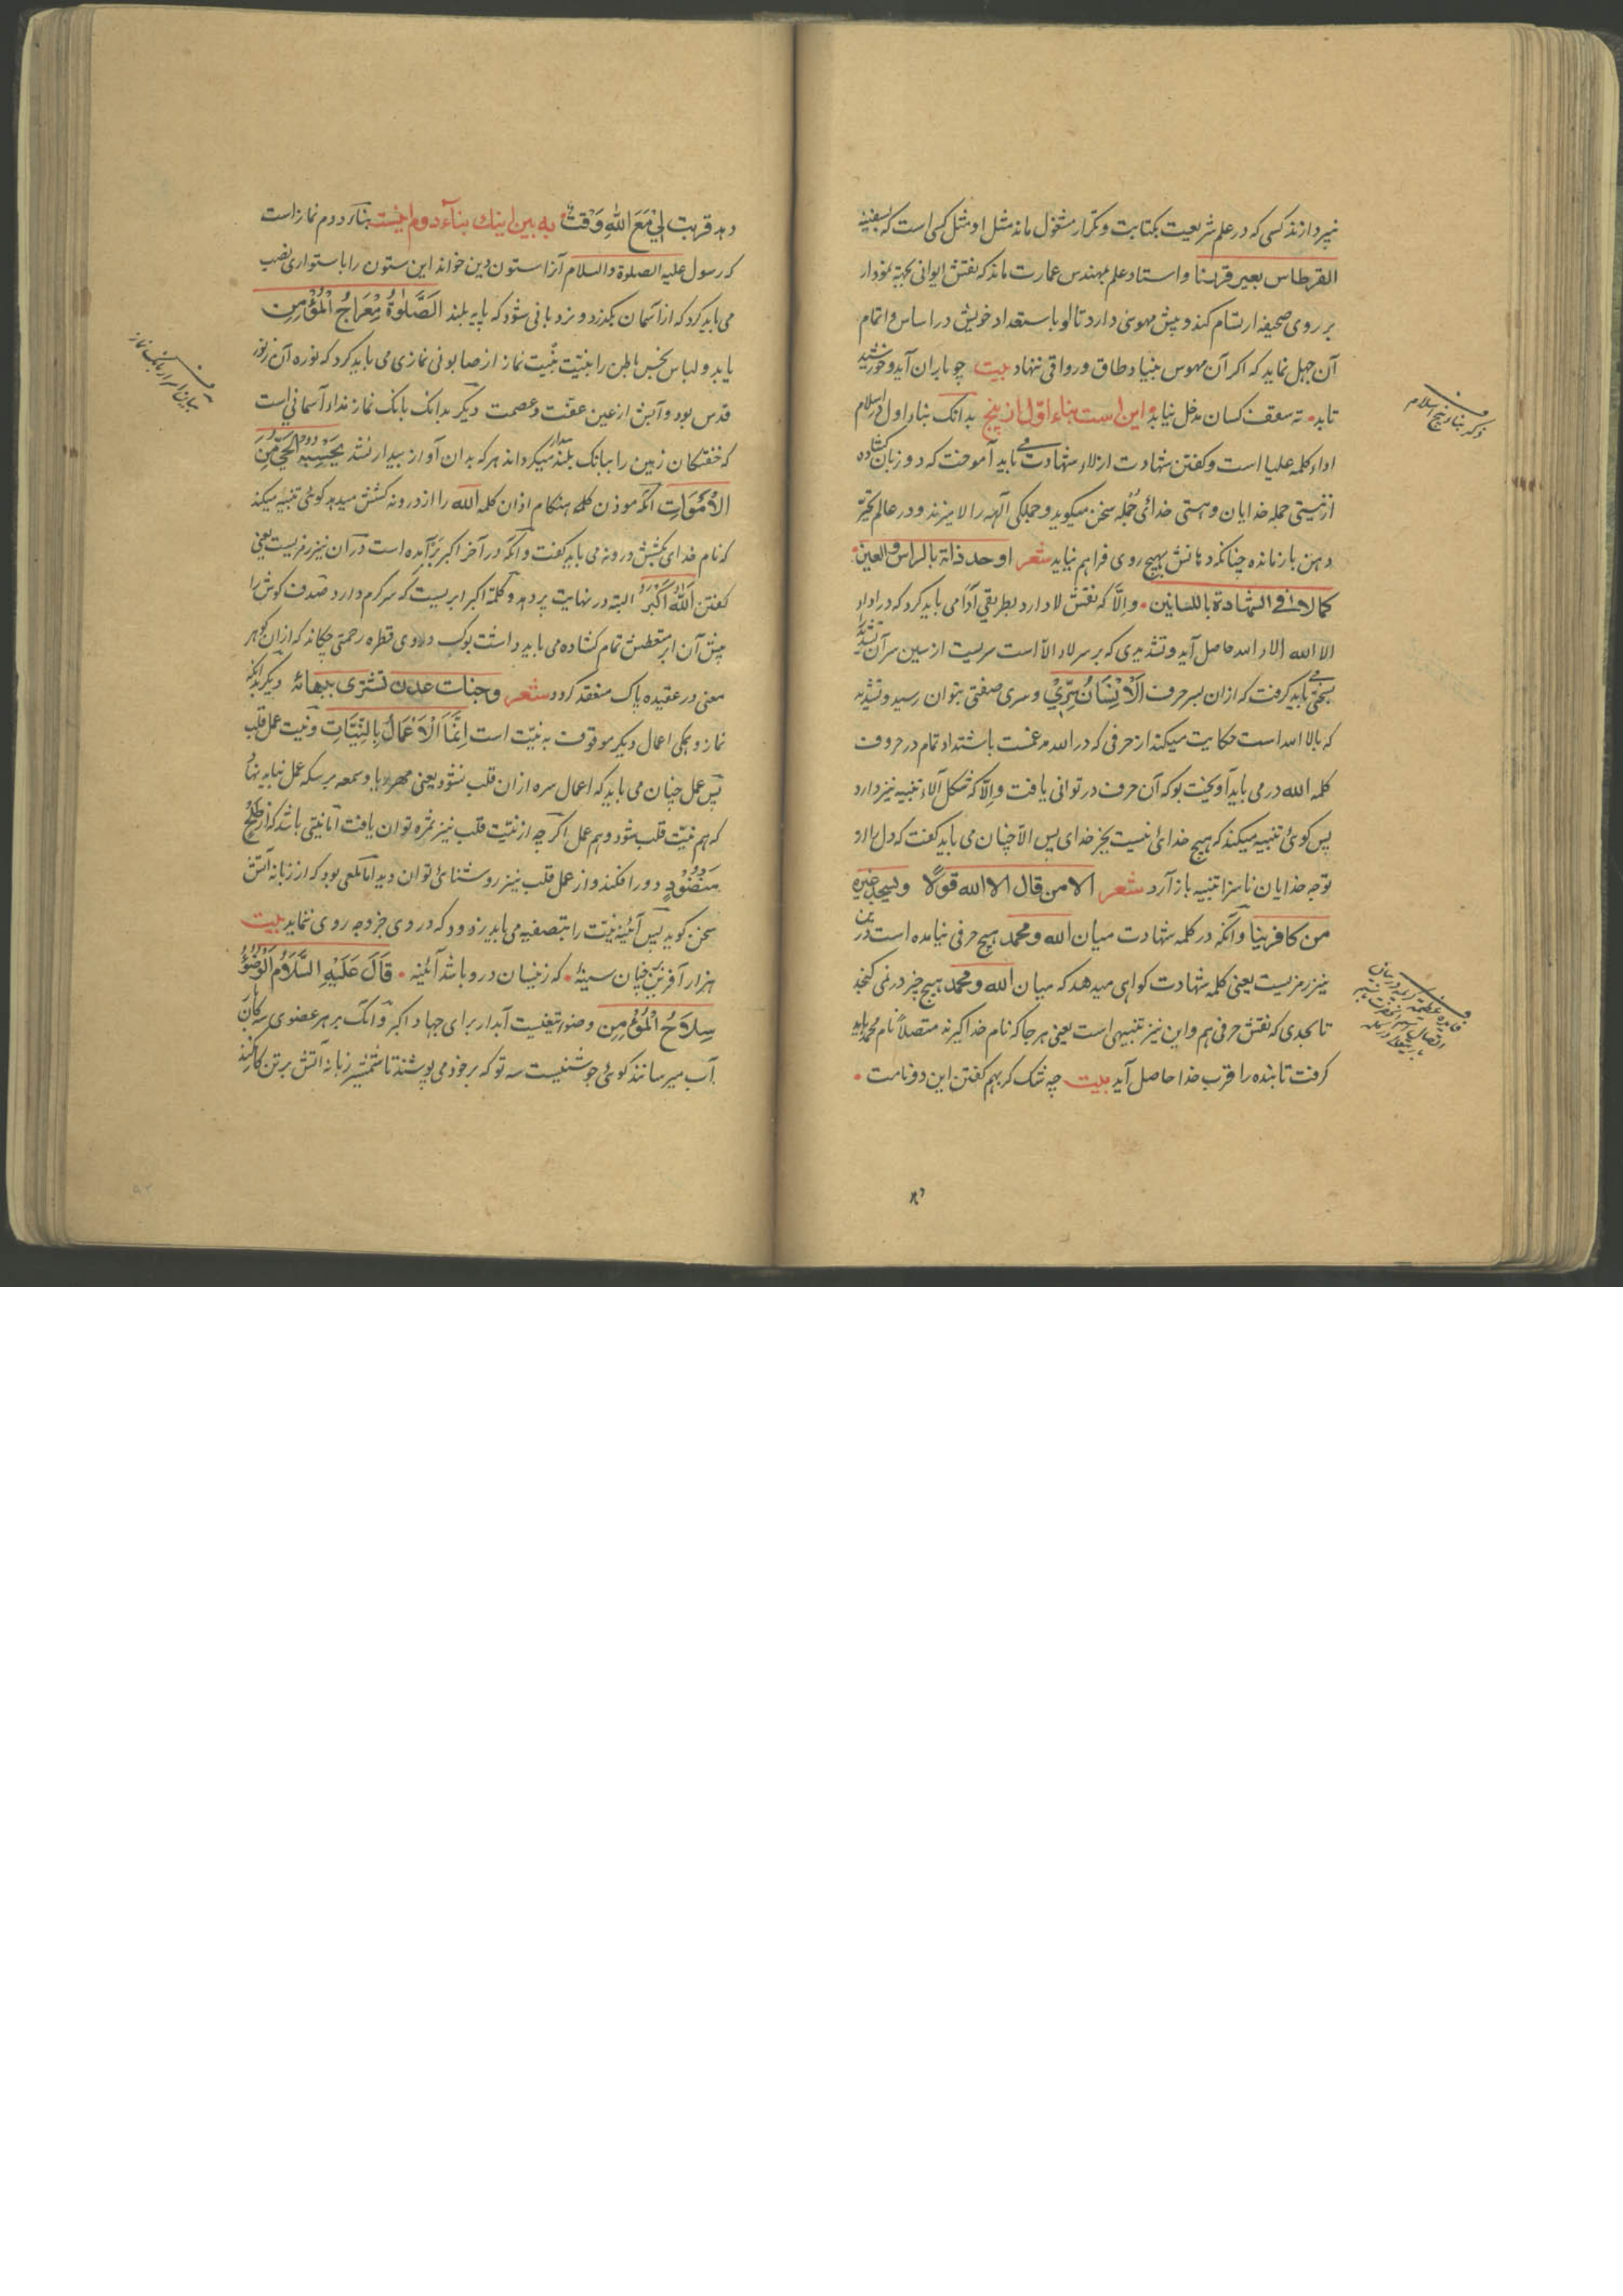 نپردازند کسی که در علم شریعت بکتابت و تکرار مشغول ماند مثل او مثل کسی است که بسفینه
القرطاس بعیر قربنا و استاد علم مهندس عمارت ماند که نقش ایوانی بجهة نمودار
بر روی صحیفه ارتسام کند و پیش مهوسی دارد تا او باستعداد خویش در اساس و اتمام
آن جهل نماید که اکر آن مهوس بنیاد طاق و رواقی ننهاد بیت چو باران آید و خورشید
تابد نه سقف کسان مدخل نیابد و این است بناء اول از پنج بدانک بناء اول در اسلام
اداء کلمه علیا است و کفتن شهادت از لاء شهادت می باید آموخت که دو زبان کشاده
از نیستی جمله خدایان و هستی خدائی جمله سخن میکوید و جملکی آلهه را لا میزند و در عالم تحیّر
دهن باز مانده چنانکه دهانش بهیچ روی فراهم نیاید شعر اوحد ذاته بالراس والعین
کمالاحا فی الشهادة باللسانین و الّا که نقش لا دارد بطریقی آدا می باید کرد که در اداء
الا الله الاء الله حاصل آید و تشدیدی که بر سر لاء الّا است سریست از سین سر آن تشدید
بحقی می باید کرفت که ازان بسر حرف الْاِنْسَانُ سِرّیْ و سری صفتی بتوان رسید و تشدید
که بالا الله است حکایت میکند از حرفی که در الله مدغمست باشتداد تمام در حروف
کلمه الله در می باید آویخت بو که آن حرف در توانی یافت و الّا که شکل آلاء تنبیه نیز دارد
پس کوئی تنبیه میکند که هیچ خدائی نیست بجز خدای پس الّا چنان می باید کفت که دل را از
توجه خدایان ناسزا تنبیه باز آرد شعر الا من قال الا الله قولا و یسجد غیره
من کافرینا و آنکه در کلمه شهادت میان الله و محمد هیچ حرفی نیامده است درین
نیز رمزیست یعنی کلمه شهادت کواهی میدهد که میان الله و محمد هیچ چیز در نمی کنجد
تا بحدی که نقش حرفی هم و این نیز تنبیهی است یعنی هر جا که نام خدا کیرند متصلاً نام محمد باید
کرفت تا بنده را قرب خدا حاصل آید بیت چه شک کر بهم کفتن این دو نامت
ذکر بناء پنج اسلام
دهد قربت لِیْ مَعَ اللهِ وَقْتٌ به بین اینك بناء دوم اینست بناء دوم نماز است
که رسول علیه الصلوة والسلام آنرا ستون دین خواند این ستون را باستواری نصب
می باید کرد که از آسمان بکذرد و نردبانی شود که پایه بلند الصَّلٰوةُ مِعْرَاجُ الْمُؤْمِنِ
یابد و لباس نجس باطن را بنیّت نماز از صابونی نمازی می باید کرد که نوره آن ز نور
قدس بود و آبش از عین عفّت و عصمت دیکر بدانک بانک نماز نداء آسمانی است
که خفتکان زمین را ببانک بلند بیدار میکرداند هر که بدان آواز بیدار نشد یَحْسِبه الحَیِّ مِنَ
الْاَمْوَاتِ آنکه موذن کلمه هنکام اذان کلمه الله را از درونه کشش میدهد کوئی تنبیه میکند
که نام خدای بکشش درونه می باید کفت و آنکه در آخر اکبر برآمده است در آن نیز رمزیست یعنی
کفتن اَللهُ اَکْبَرُ البته در نهایت بر دهد و کلمه اکبر ابریست که سر کرم دارد صدف کوش را
پیش آن ابر متعطش تمام کشاده می باید داشت بو که دلاوی قطره رحمتی چکاند که ازان کوهر
معنی در عقیده پاک منعقد کردد شعر وجنات عدن تشتری ببهائه دیکر بدانکه
نماز و همکی اعمال دیکر موقوف به نیّت است اِنَّمَا الْاَعْمَالُ بِالنِّیَّاتِ و نیّت عمل قلب
پس عمل چنان می باید که اعمال سره ازان قلب نشود یعنی مهر ریا و سمعه بر سکه عمل نباید نهاد
که هم نیّت قلب شود و هم عمل اکر چه از نیّت قلب نیز ثمره توان یافت اما نیتی باشد که از طَلْحٍ
مَنْضُودٍ دور افکند و از عمل قلب نیز روشنائی توان دید اما لمعی بود که از زبانه آتش
سخن کوید پس آئینه نیّت را بتصفیه می باید زدود که در وی جز وجه روی ننماید بیت
هزار آفرین بر چنان سینهٔ که زینسان درو باشد آئینه قَالَ عَلَیْهِ السَّلَامُ الْوُضُوءُ
سِلَاحُ الْمُؤْمِنِ وضوء تیغیست آبدار برای جهاد اکبر و آنک بر هر عضوی سه کان
آب میرسانند کوئی جوشنیست سه تو که بر خود می پوشند تا شمشیر زبانه آتش بر تن کار نکند
بیان اسرار بانک نماز